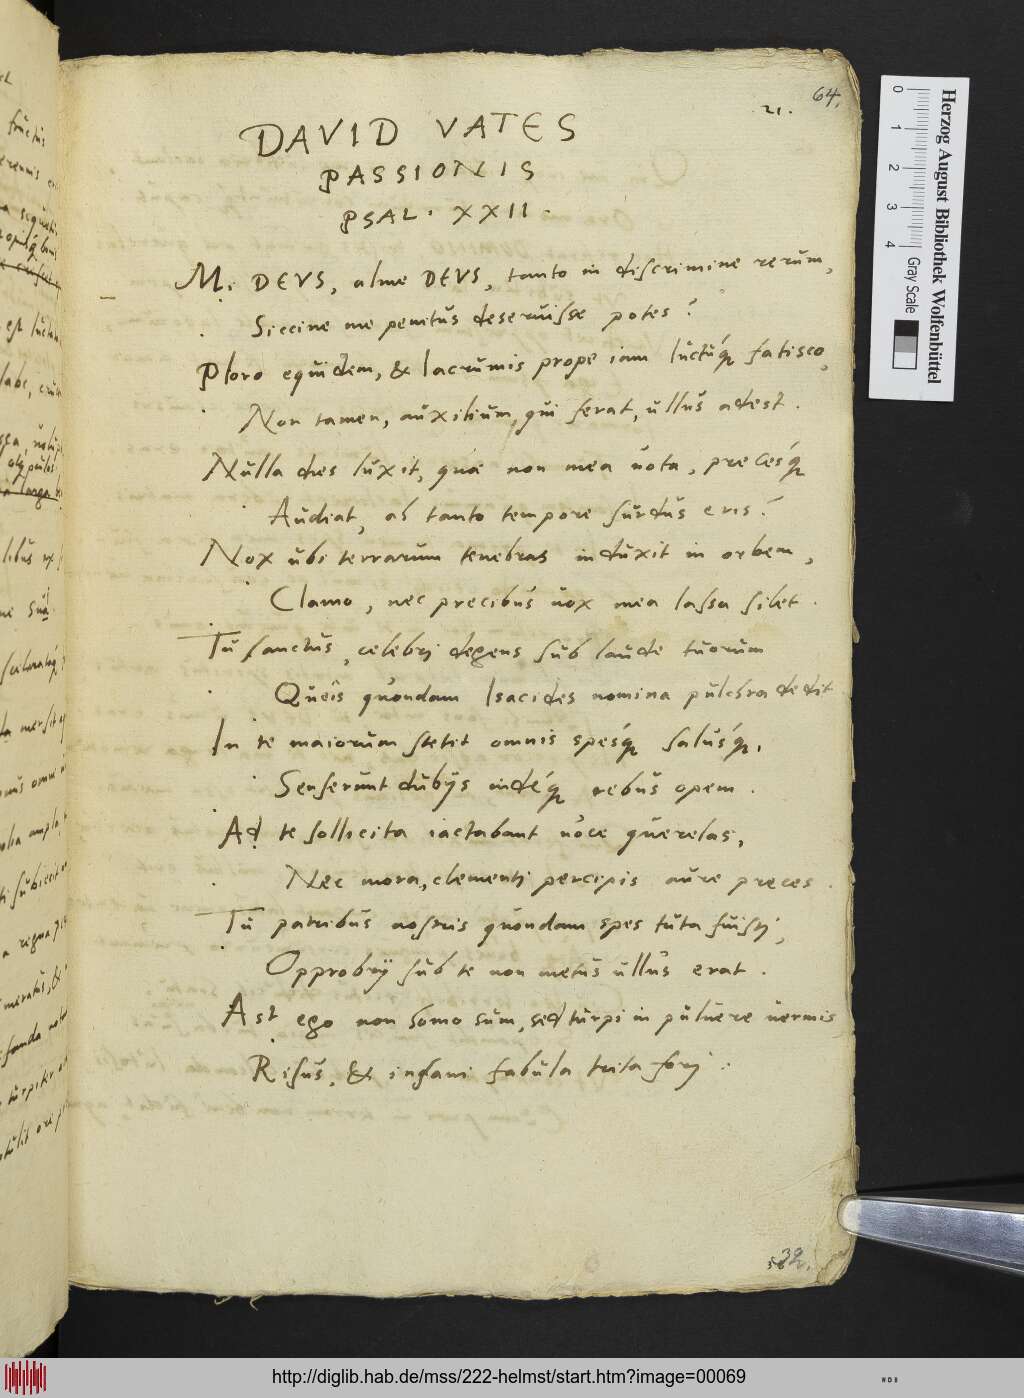 64.
21.
DAVID VATES
PASSIONIS
PSAL. XXII.
Mi DEVS, alme DEVS, tanto in discrimine rerum,
Siccine me penitus deseruisse potes?
Ploro equidem, & lacrumis prope iam luctuq́; fatisco,
Non tamen, auxilium, qui ferat, ullus adest.
Nulla dies luxit, quæ non mea uota, precesq́;
Audiat, ah tanto tempore surdus eris?
Nox ubi terrarum tenebras induxit in orbem,
Clamo, nec precibus uox mea lassa silet.
Tu sanctus, celebri degens sub laude tuorum
Queis quondam Isacides nomina pulchra dedit
In te maiorum stetit omnis spesq́; salusq́;.
Senserunt dubijs indéq́; rebus opem.
Ad te sollicita iactabant uoce querelas,
Nec mora, clementi percipis aure preces.
Tu patribus nostris quondam spes tuta fuisti,
Opprobrij sub te non metus ullus erat.
Ast ego non homo sum, sed turpi in puluere uermis
Risus, & insani fabula trita fori:
32.
Herzog August Bibliothek Wolfenbüttel
0 1 2 3 4
Gray Scale
http://diglib.hab.de/mss/222-helmst/start.htm?image=00069